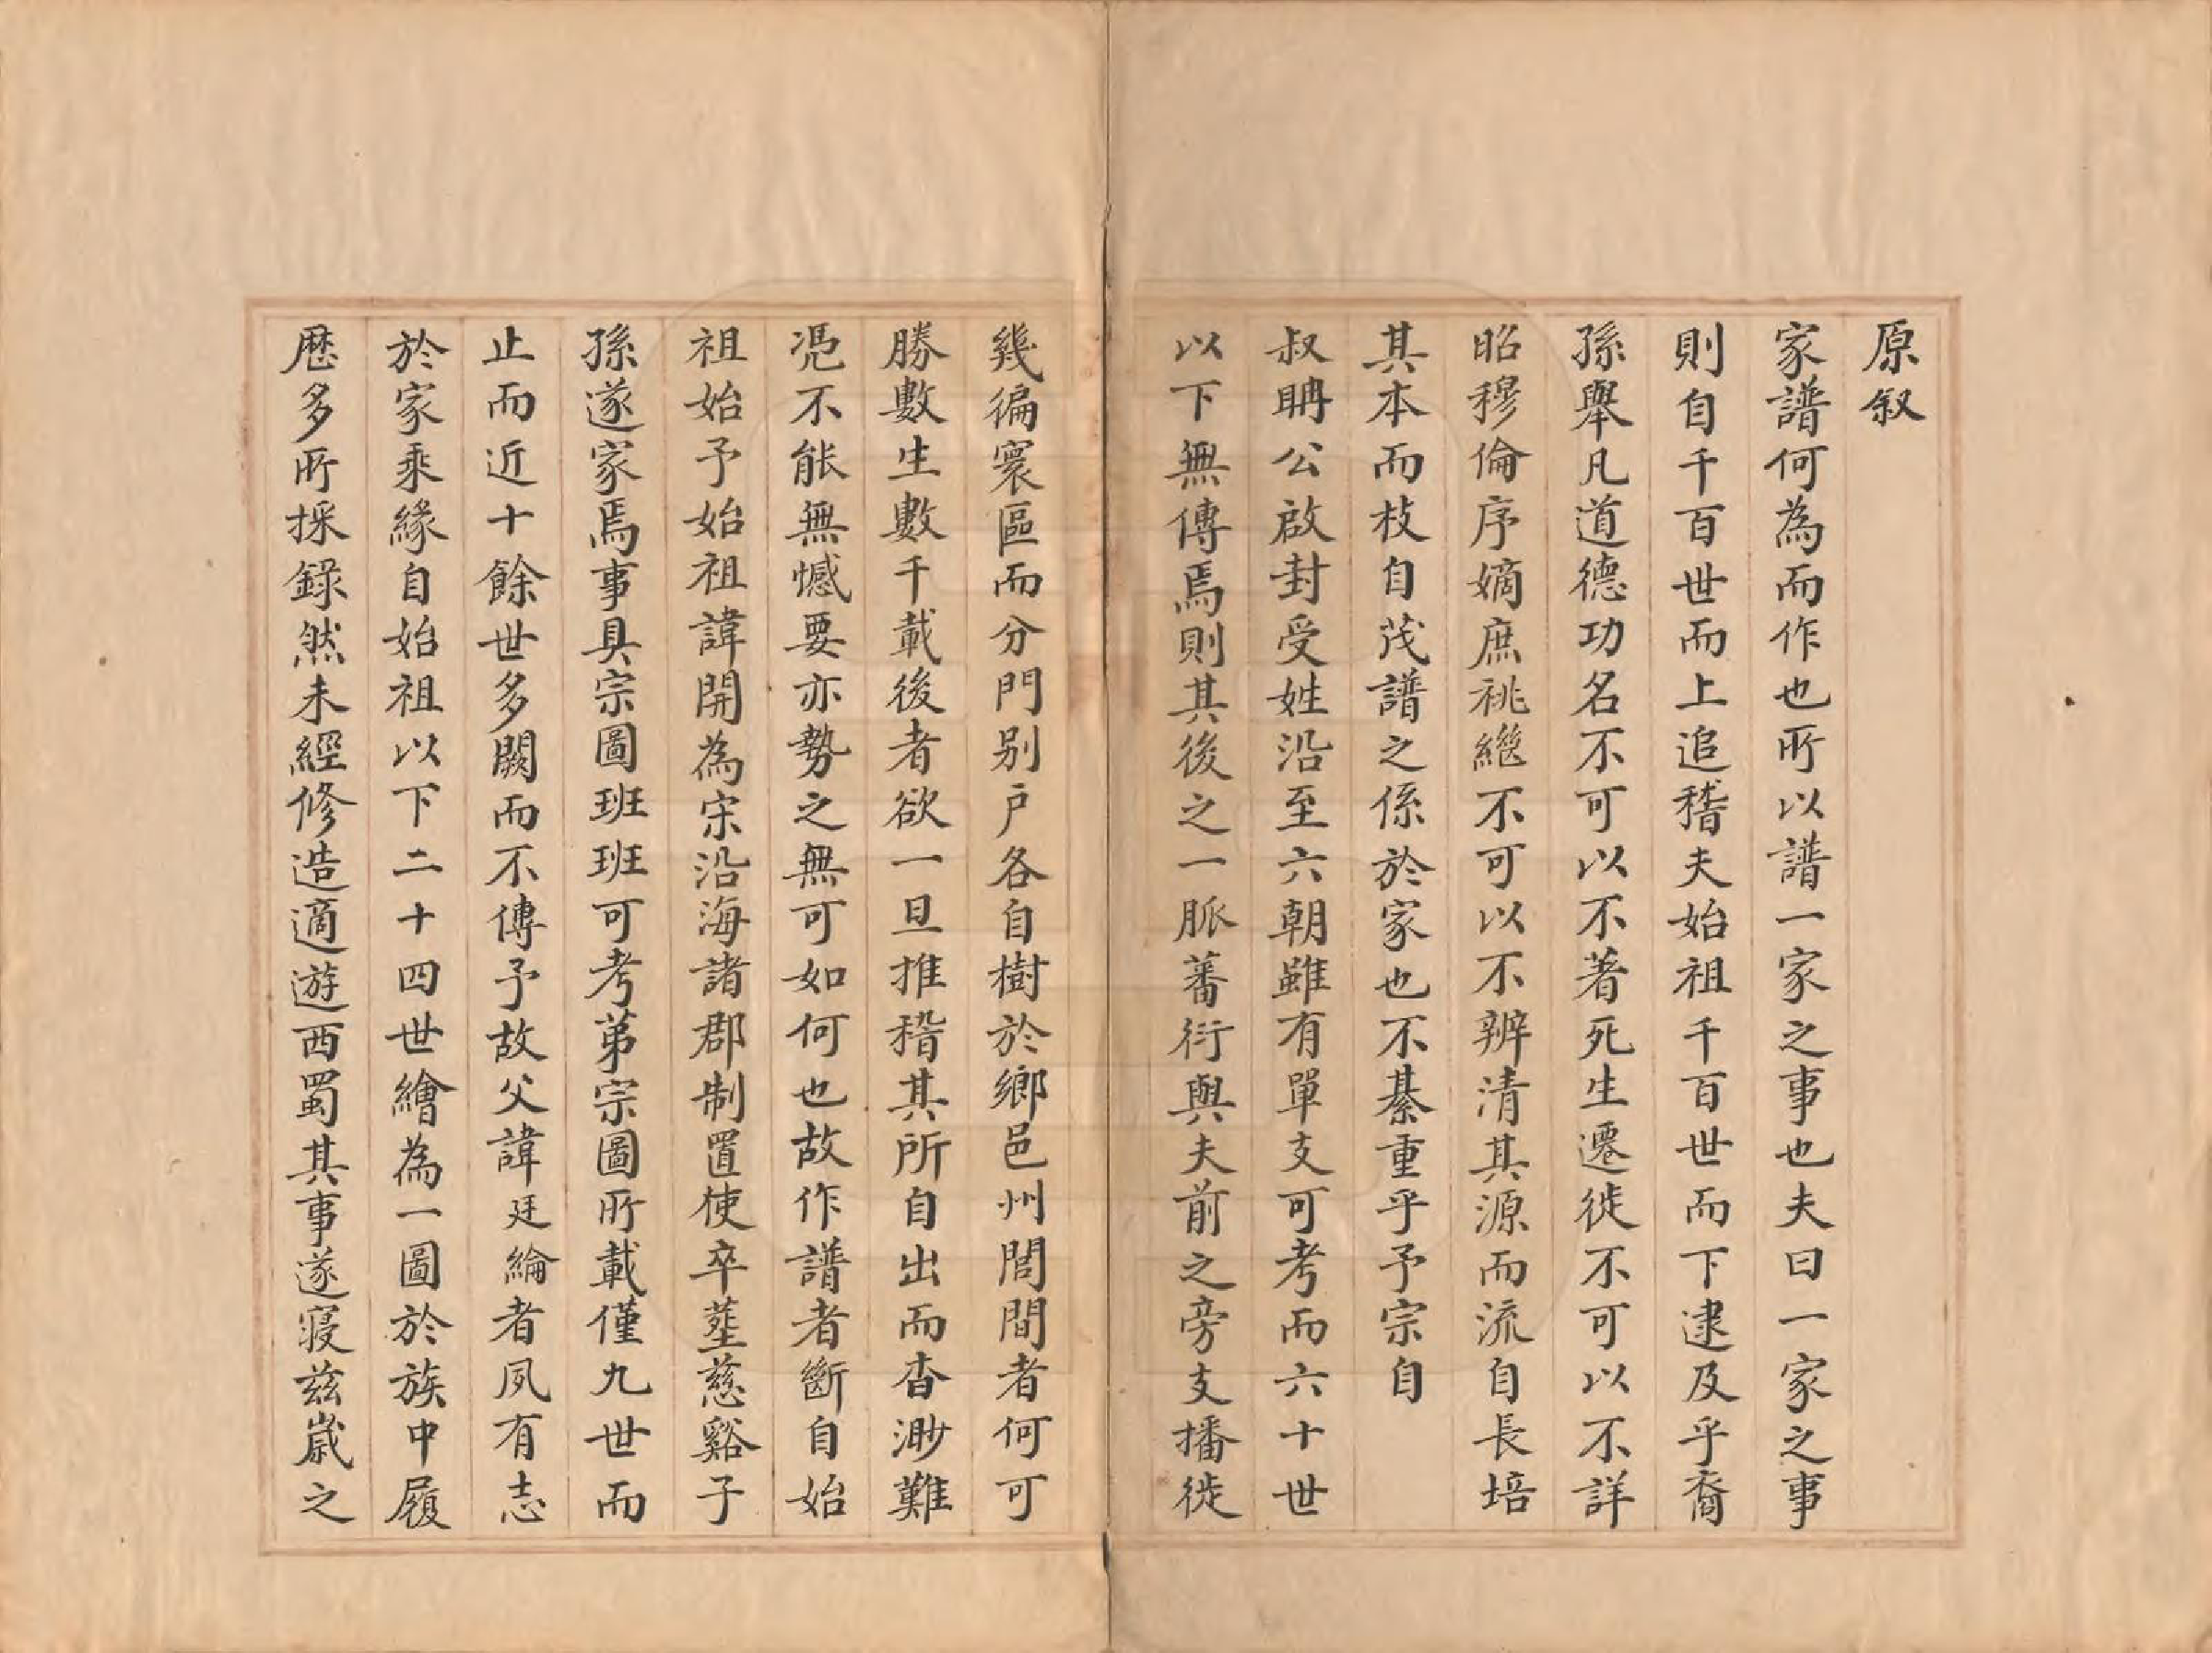 原叙
家譜何為而作也所以譜一家之事也夫曰一家之事
則自千百世而上追稽夫始祖千百世而下逮及乎裔
孫舉凡道德功名不可以不著死生遷徙不可以不詳
昭穆倫序嫡庶祧繼不可以不辨清其源而流自長培
其本而枝自茂譜之係於家也不綦重乎予宗自
叔聃公啟封受姓沿至六朝雖有單支可考而六十世
以下無傳焉則其後之一脈蕃衍與夫前之旁支播徙
幾徧寰區而分門别戶各自樹於鄉邑州閭間者何可
勝數生數千載後者欲一旦推稽其所自出而杳渺難
憑不能無憾要亦勢之無可如何也故作譜者斷自始
祖始予始祖諱開為宋沿海諸郡制置使卒塟慈谿子
孫遂家焉事具宗圖班班可考第宗圖所載僅九世而
止而近十餘世多闕而不傳予故父諱廷綸者夙有志
於家乘緣自始祖以下二十四世繪為一圖於族中履
歴多所採錄然未經修造適遊西蜀其事遂寢兹歲之